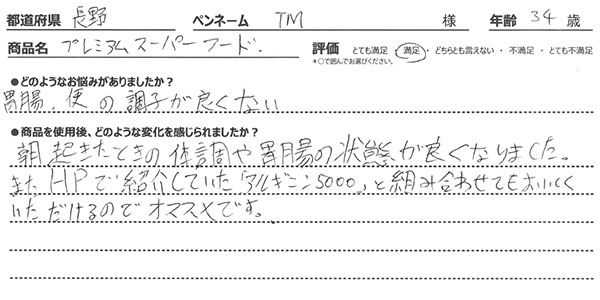 都道府県 長野 ペンネーム TM 様 年齢 34 歳
商品名 プレミアムスーパーフード. 評価 とても満足・満足・どちらとも言えない・不満足・とても不満足
*○で囲んでお選びください。
●どのようなお悩みがありましたか?
胃腸、便の調子が良くない
●商品を使用後、どのような変化を感じられましたか?
朝起きたときの体調や胃腸の状態が良くなりました。
またHPで紹介していた「アルギニン5000」と組み合わせてもおいしく
いただけるのでオススメです。